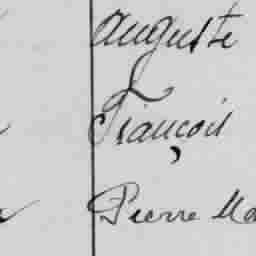 Auguste
François
Pierre Ma